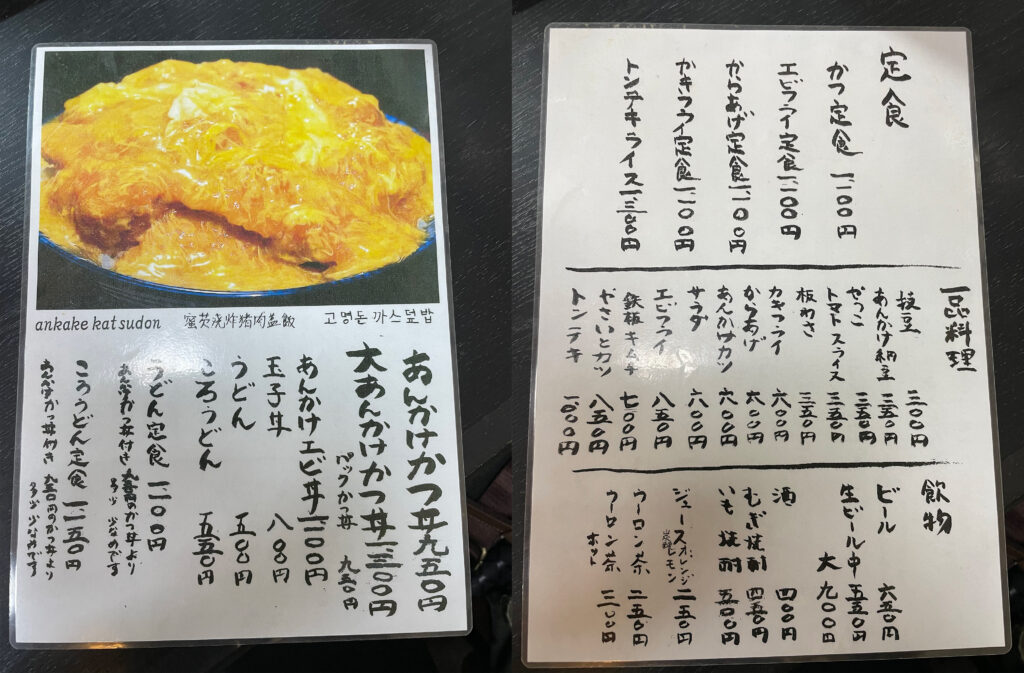 ankake katsudon
蜜芡浇炸猪肉盖飯
고명돈까스덮밥
あんかけかつ丼 九五〇円
大あんかけかつ丼 一三〇〇円
パックかつ丼 九五〇円
あんかけエビ丼 一一〇〇円
玉子丼 八〇〇円
うどん 五〇〇円
ころうどん 五五〇円
うどん定食 一一〇〇円
あんかけかつ丼付き 九五〇円のかつ丼より
多少 少なめです
ころうどん定食 一一五〇円
あんかけかつ丼付き 九五〇円のかつ丼より
多少 少なめです
定食
かつ定食 一一〇〇円
エビフライ定食 一一〇〇円
からあげ定食 一一〇〇円
かきフライ定食 一一〇〇円
トンテキライス 一三〇〇円
一品料理
枝豆 三〇〇円
あんかけ納豆 三五〇円
やっこ 三五〇円
トマトスライス 三五〇円
板わさ 三五〇円
カキフライ 六〇〇円
からあげ 六〇〇円
あんかけカツ 六〇〇円
サラダ 六〇〇円
エビフライ 八五〇円
鉄板キムチ 七〇〇円
やさいとカツ 八五〇円
トンテキ 一〇〇〇円
飲物
ビール 六五〇円
生ビール中 五五〇円
大 九〇〇円
酒 四〇〇円
むぎ焼酎 四五〇円
いも焼酎 五〇〇円
ジュース オレンジ 二五〇円
炭酸レモン
ウーロン茶 二五〇円
ウーロン茶 三〇〇円
ホット